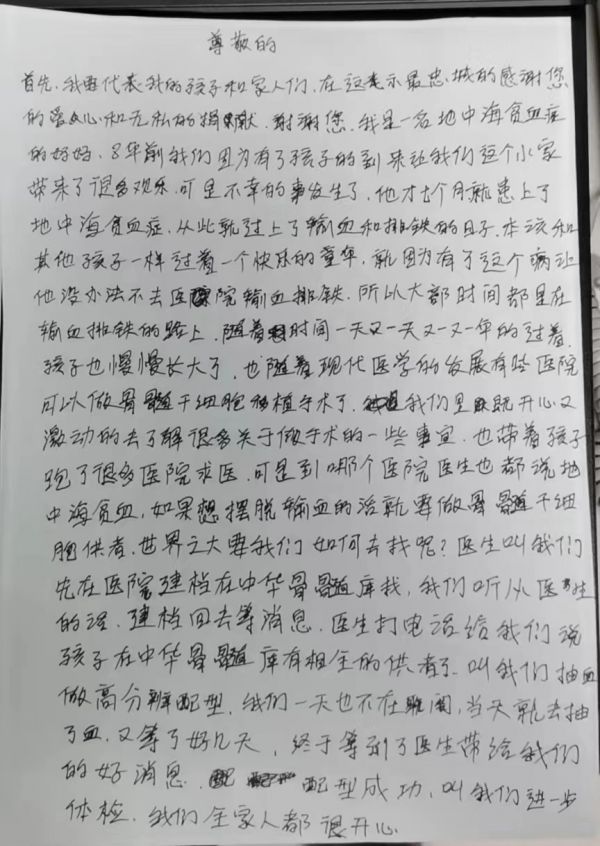 尊敬的
首先,我要代表我的孩子和家人们,在这表示最忠城的感谢您
的爱心和无私的捐献,谢谢您,我是一名地中海贫血症
的妈妈,8年前我们因为有了孩子的到来让我们这个小家
带来了很多欢乐,可是不幸的事发生了,他才七个月就患上了
地中海贫血症,从此就过上了输血和排铁的日子.本该和
其他孩子一样过着一个快乐的童年,就因为有了这个病让
他没办法不去医院输血排铁.所以大部时间都是在
输血排铁的路上,随着时间一天又一天又一又一年的过着,
孩子也慢慢长大了,也随着现代医学的发展有些医院
可以做骨髓干细胞移植手术了,我们是既开心又
激动的去了解很多关于做手术的一些事宜.也带着孩子
跑了很多医院求医,可是到哪个医院医生也都说地
中海贫血,如果想摆脱输血的话就要做骨髓干细
胞供者,世界之大要我们如何去找呢?医生叫我们
先在医院建档在中华骨髓库找,我们听从医生
的话,建档回去等消息.医生打电话给我们说
孩子在中华骨髓库有相全的供者了.叫我们抽血
做高分辨配型,我们一天也不在,当天就去抽
了血,又等了好几天,终于等到了医生带给我们
的好消息.配型成功,叫我们进一步
体检,我们全家人都很开心.